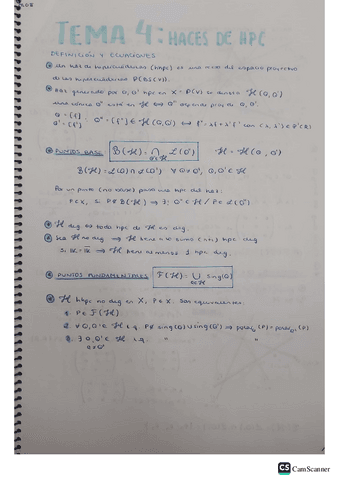 TEMA 4: HACES DE HPC
DEFINICIÓN Y ECUACIONES
Un haz de hipercuádricas (hhpc) es una recta del espacio proyectivo
de las hipercuádricas P(BS(V)).
Haz generado por Q, Q' hpc en X = P(V) se denota ℋ(Q, Q')
una Q'' está en ℋ ⟺ Q'' depende
Q = [f]
Q' = [f'] Q'' = [f''] ∈ ℋ(Q, Q') ⟺ f'' = λf + λ'f'
PUNTOS BASE B(ℋ) = ∩ Q∈ℋ ℋ = ℋ(Q, Q')
∀ Q, Q' ∈ ℋ
Por un punto (no base) pasa una hpc del haz:
P ∈ X, si P ∉ B(ℋ) ⇒ ∃! Q'' ∈ ℋ / P ∈
ℋ deg ⟺ todo hpc de ℋ es deg.
Sea ℋ no deg ⟹ ℋ tiene a lo sumo (n+1) hpc deg
⟹ ℋ tiene al menos 1 hpc deg.
PUNTOS FUNDAMENTALES F(ℋ) = ∪ Q∈ℋ sing(Q)
ℋ hhpc no deg en X, P ∈ X. Son equivalentes:
1. P ∈ F(ℋ).
2. ∀ Q, Q' ∈ ℋ t.q. P ∉ sing(Q) ∪ sing(Q') ⟹ polar_Q(P) = polar_Q'(P)
3. ∃ Q, Q' ∈ ℋ t.q. " "
Q ≠ Q'
CS CamScanner